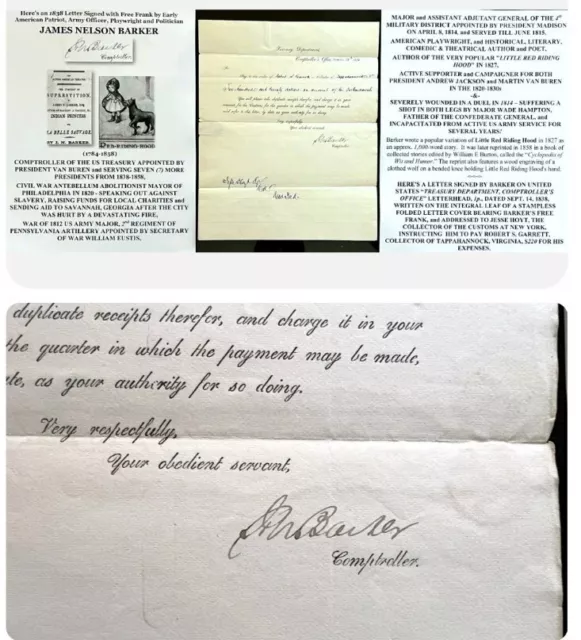 Here's an 1838 Letter Signed with Free Frank by Early
American Patriot, Army Officer, Playwright and Politician
JAMES NELSON BARKER
Comptroller.
SUPERSTITION,
INDIAN PRINCESS
LA BELLE SAUVAGE.
BY J. N. BARKER.
RED RIDING HOOD
(1784-1858)
COMPTROLLER OF THE US TREASURY APPOINTED BY
PRESIDENT VAN BUREN AND SERVING SEVEN (7) MORE
PRESIDENTS FROM 1838-1858.
CIVIL WAR ANTEBELLUM ABOLITIONIST MAYOR OF
PHILADELPHIA IN 1820 - SPEAKING OUT AGAINST
SLAVERY, RAISING FUNDS FOR LOCAL CHARITIES and
SENDING AID TO SAVANNAH, GEORGIA AFTER THE CITY
WAS HURT BY A DEVASTATING FIRE,
WAR OF 1812 US ARMY MAJOR, 2nd REGIMENT OF
PENNSYLVANIA ARTILLERY APPOINTED BY SECRETARY
OF WAR WILLIAM EUSTIS,
Treasury Department,
Very respectfully,
Your obedient servant,
Comptroller.
MAJOR and ASSISTANT ADJUTANT GENERAL OF THE 4th
MILITARY DISTRICT APPOINTED BY PRESIDENT MADISON
ON APRIL 8, 1814, and SERVED TILL JUNE 1815.
AMERICAN PLAYWRIGHT, and HISTORICAL, LITERARY,
COMEDIC & THEATRICAL AUTHOR and POET,
AUTHOR OF THE VERY POPULAR "LITTLE RED RIDING
HOOD" IN 1827,
ACTIVE SUPPORTER and CAMPAIGNER FOR BOTH
PRESIDENT ANDREW JACKSON and MARTIN VAN BUREN
IN THE 1820-1830s
-&-
SEVERELY WOUNDED IN A DUEL IN 1814 – SUFFERING A
SHOT IN BOTH LEGS BY MAJOR WADE HAMPTON,
FATHER OF THE CONFEDERATE GENERAL, and
INCAPACITATED FROM ACTIVE US ARMY SERVICE FOR
SEVERAL YEARS!
Barker wrote a popular variation of Little Red Riding Hood in 1827 as
an approx. 1,000-word story. It was later reprinted in 1858 in a book of
collected stories edited by William E Burton, called the "Cyclopedia of
Wit and Humor." The reprint also features a wood engraving of a
clothed wolf on a bended knee holding Little Red Riding Hood's hand.
HERE'S A LETTER SIGNED BY BARKER ON UNITED
STATES "TREASURY DEPARTMENT, COMPTROLLER'S
OFFICE" LETTERHEAD, 1p., DATED SEPT. 14, 1838,
WRITTEN ON THE INTEGRAL LEAF OF A STAMPLESS
FOLDED LETTER COVER BEARING BARKER'S FREE
FRANK, and ADDRESSED TO JESSE HOYT, THE
COLLECTOR OF THE CUSTOMS AT NEW YORK,
INSTRUCTING HIM TO PAY ROBERT S. GARRETT,
COLLECTOR OF TAPPAHANNOCK, VIRGINIA, $220 FOR HIS
EXPENSES.
duplicate receipts therefor, and charge it in your
the quarter in which the payment may be made,
te, as your authority for so doing.
Very respectfully,
Your obedient servant,
J N Barker
Comptroller.